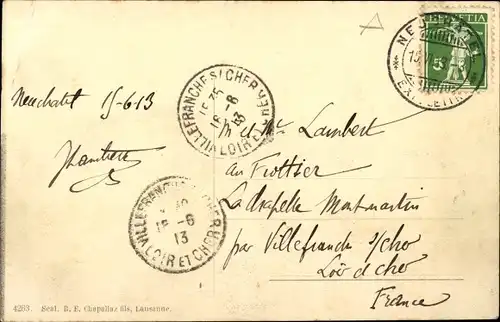 HELVETIA
5
NEUCHATEL
EXP. LETTR.
VILLEFRANCHE S/CHER
15 35
16 -6
13
LOIR ET CHER
Neuchatel 15-6-13
M et Mme Lambert
au Frottier
La Chapelle Montmartin
par Villefranche s/cher
Loir et cher
France
VILLEFRANCHE S/CHER
16 -6
13
LOIR ET CHER
4263 Scal. B. F. Chapallaz fils, Lausanne.